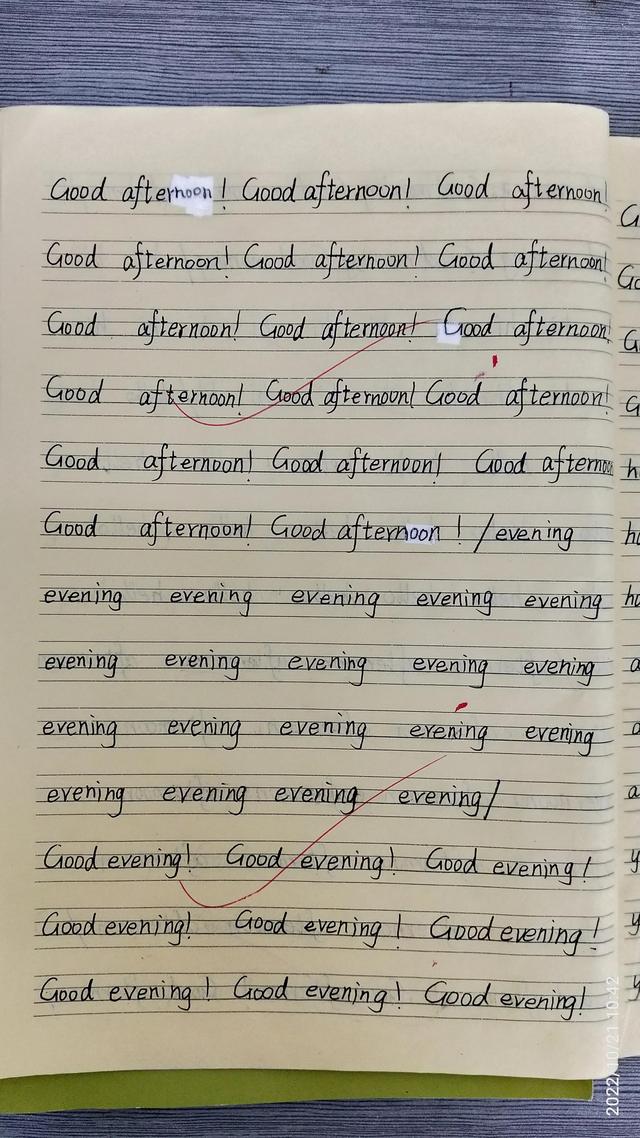 Good afternoon! Good afternoon! Good afternoon!
Good afternoon! Good afternoon! Good afternoon!
Good afternoon! Good afternoon! Good afternoon!
Good afternoon! Good afternoon! Good afternoon!
Good afternoon! Good afternoon! Good afternoo
Good afternoon! Good afternoon! /evening
evening evening evening evening evening
evening evening evening evening evening
evening evening evening evening evening
evening evening evening evening/
Good evening! Good evening! Good evening!
Good evening! Good evening! Good evening!
Good evening! Good evening! Good evening!
2022/10/21 10:42